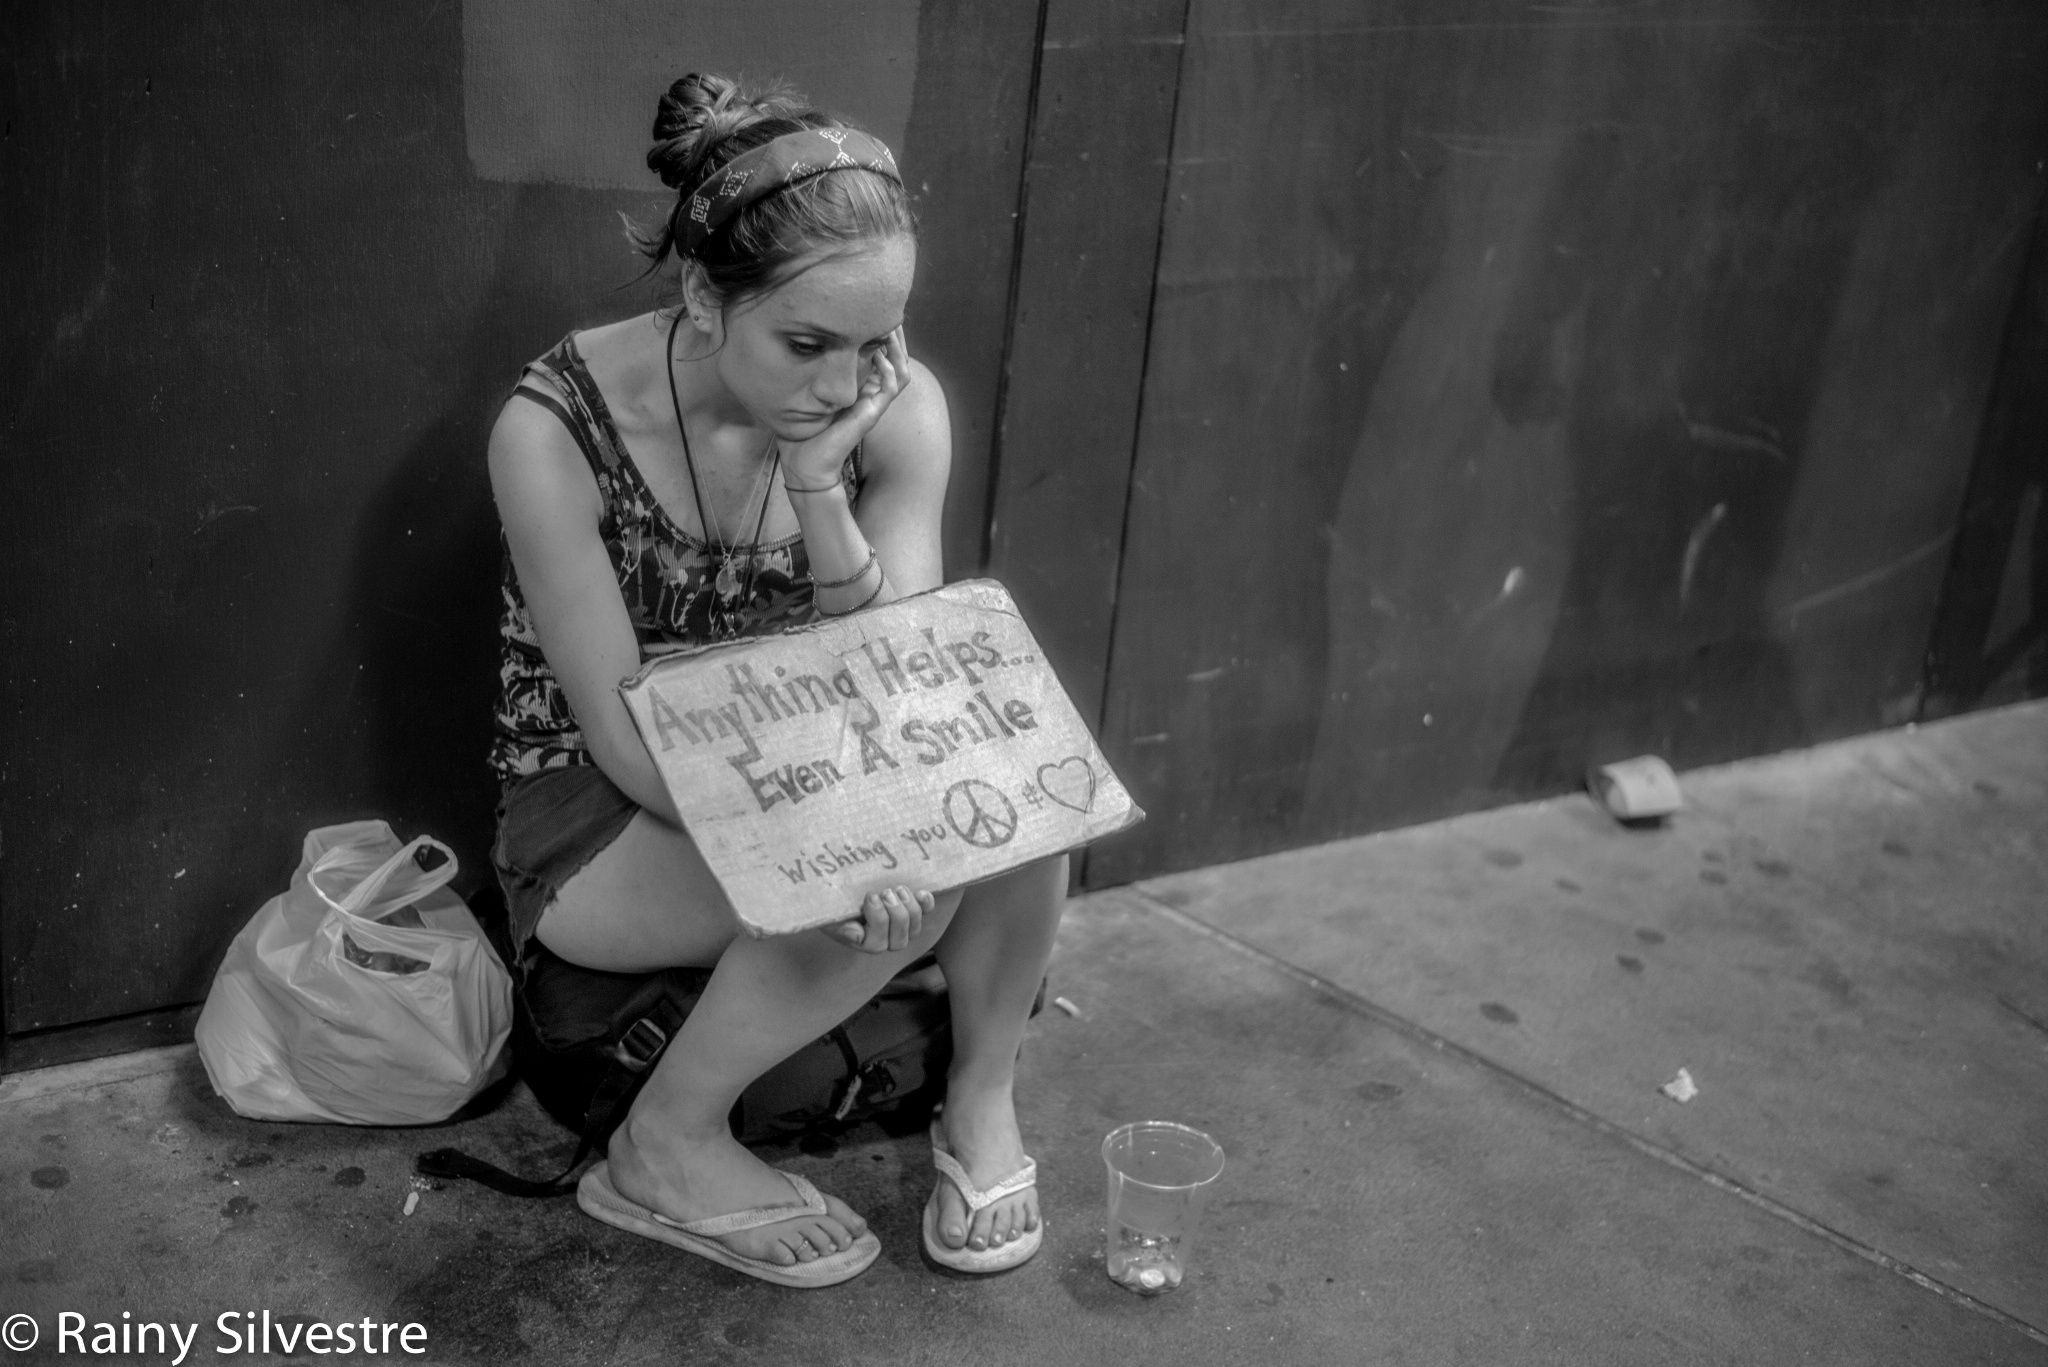 Anything Helps...
Even A Smile
Wishing you ☮ & ♡
© Rainy Silvestre